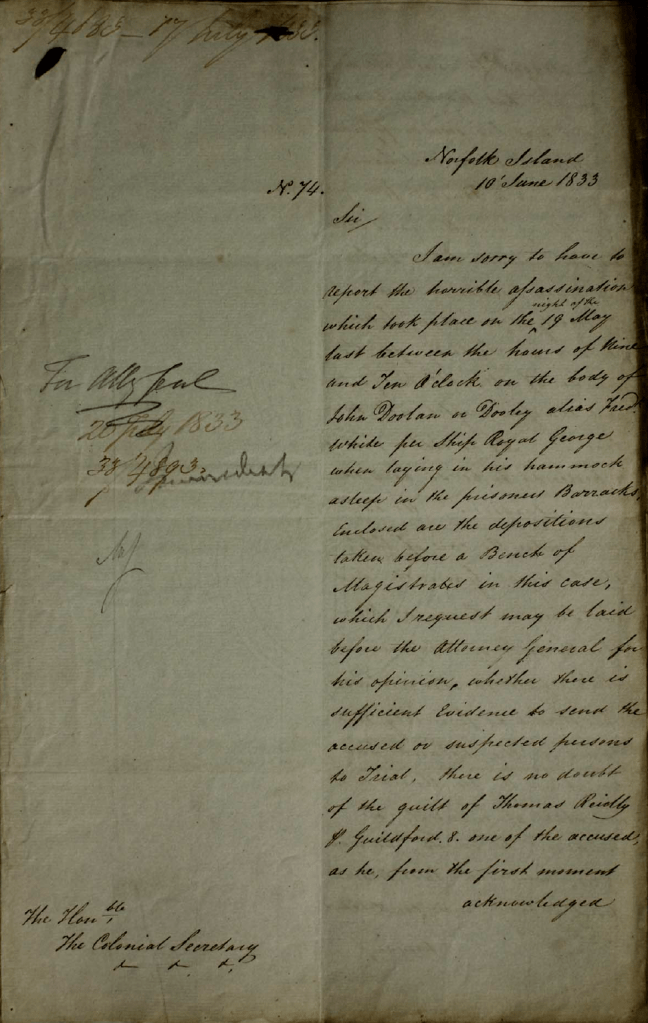 33/4683 – 17 July 1833.
Norfolk Island
10 June 1833
N. 74.
Sir/
I am sorry to have to
report the horrible assassination
night of the
which took place on the 19 May
last between the hours of Nine
and Ten O'Clock on the body of
John Doolan or Dooley alias Fred.
White per Ship Royal George
when laying in his hammock
asleep in the prisoners Barracks.
Enclosed are the depositions
taken before a Bench of
Magistrates in this case,
which I request may be laid
before the Attorney General for
his opinion, whether there is
sufficient Evidence to send the
accused or suspected persons
to Trial, there is no doubt
of the guilt of Thomas Reidly
P. Guildford. 8. one of the accused,
as he, from the first moment
acknowledged
1833
The Honble
The Colonial Secretary
&. &. &.